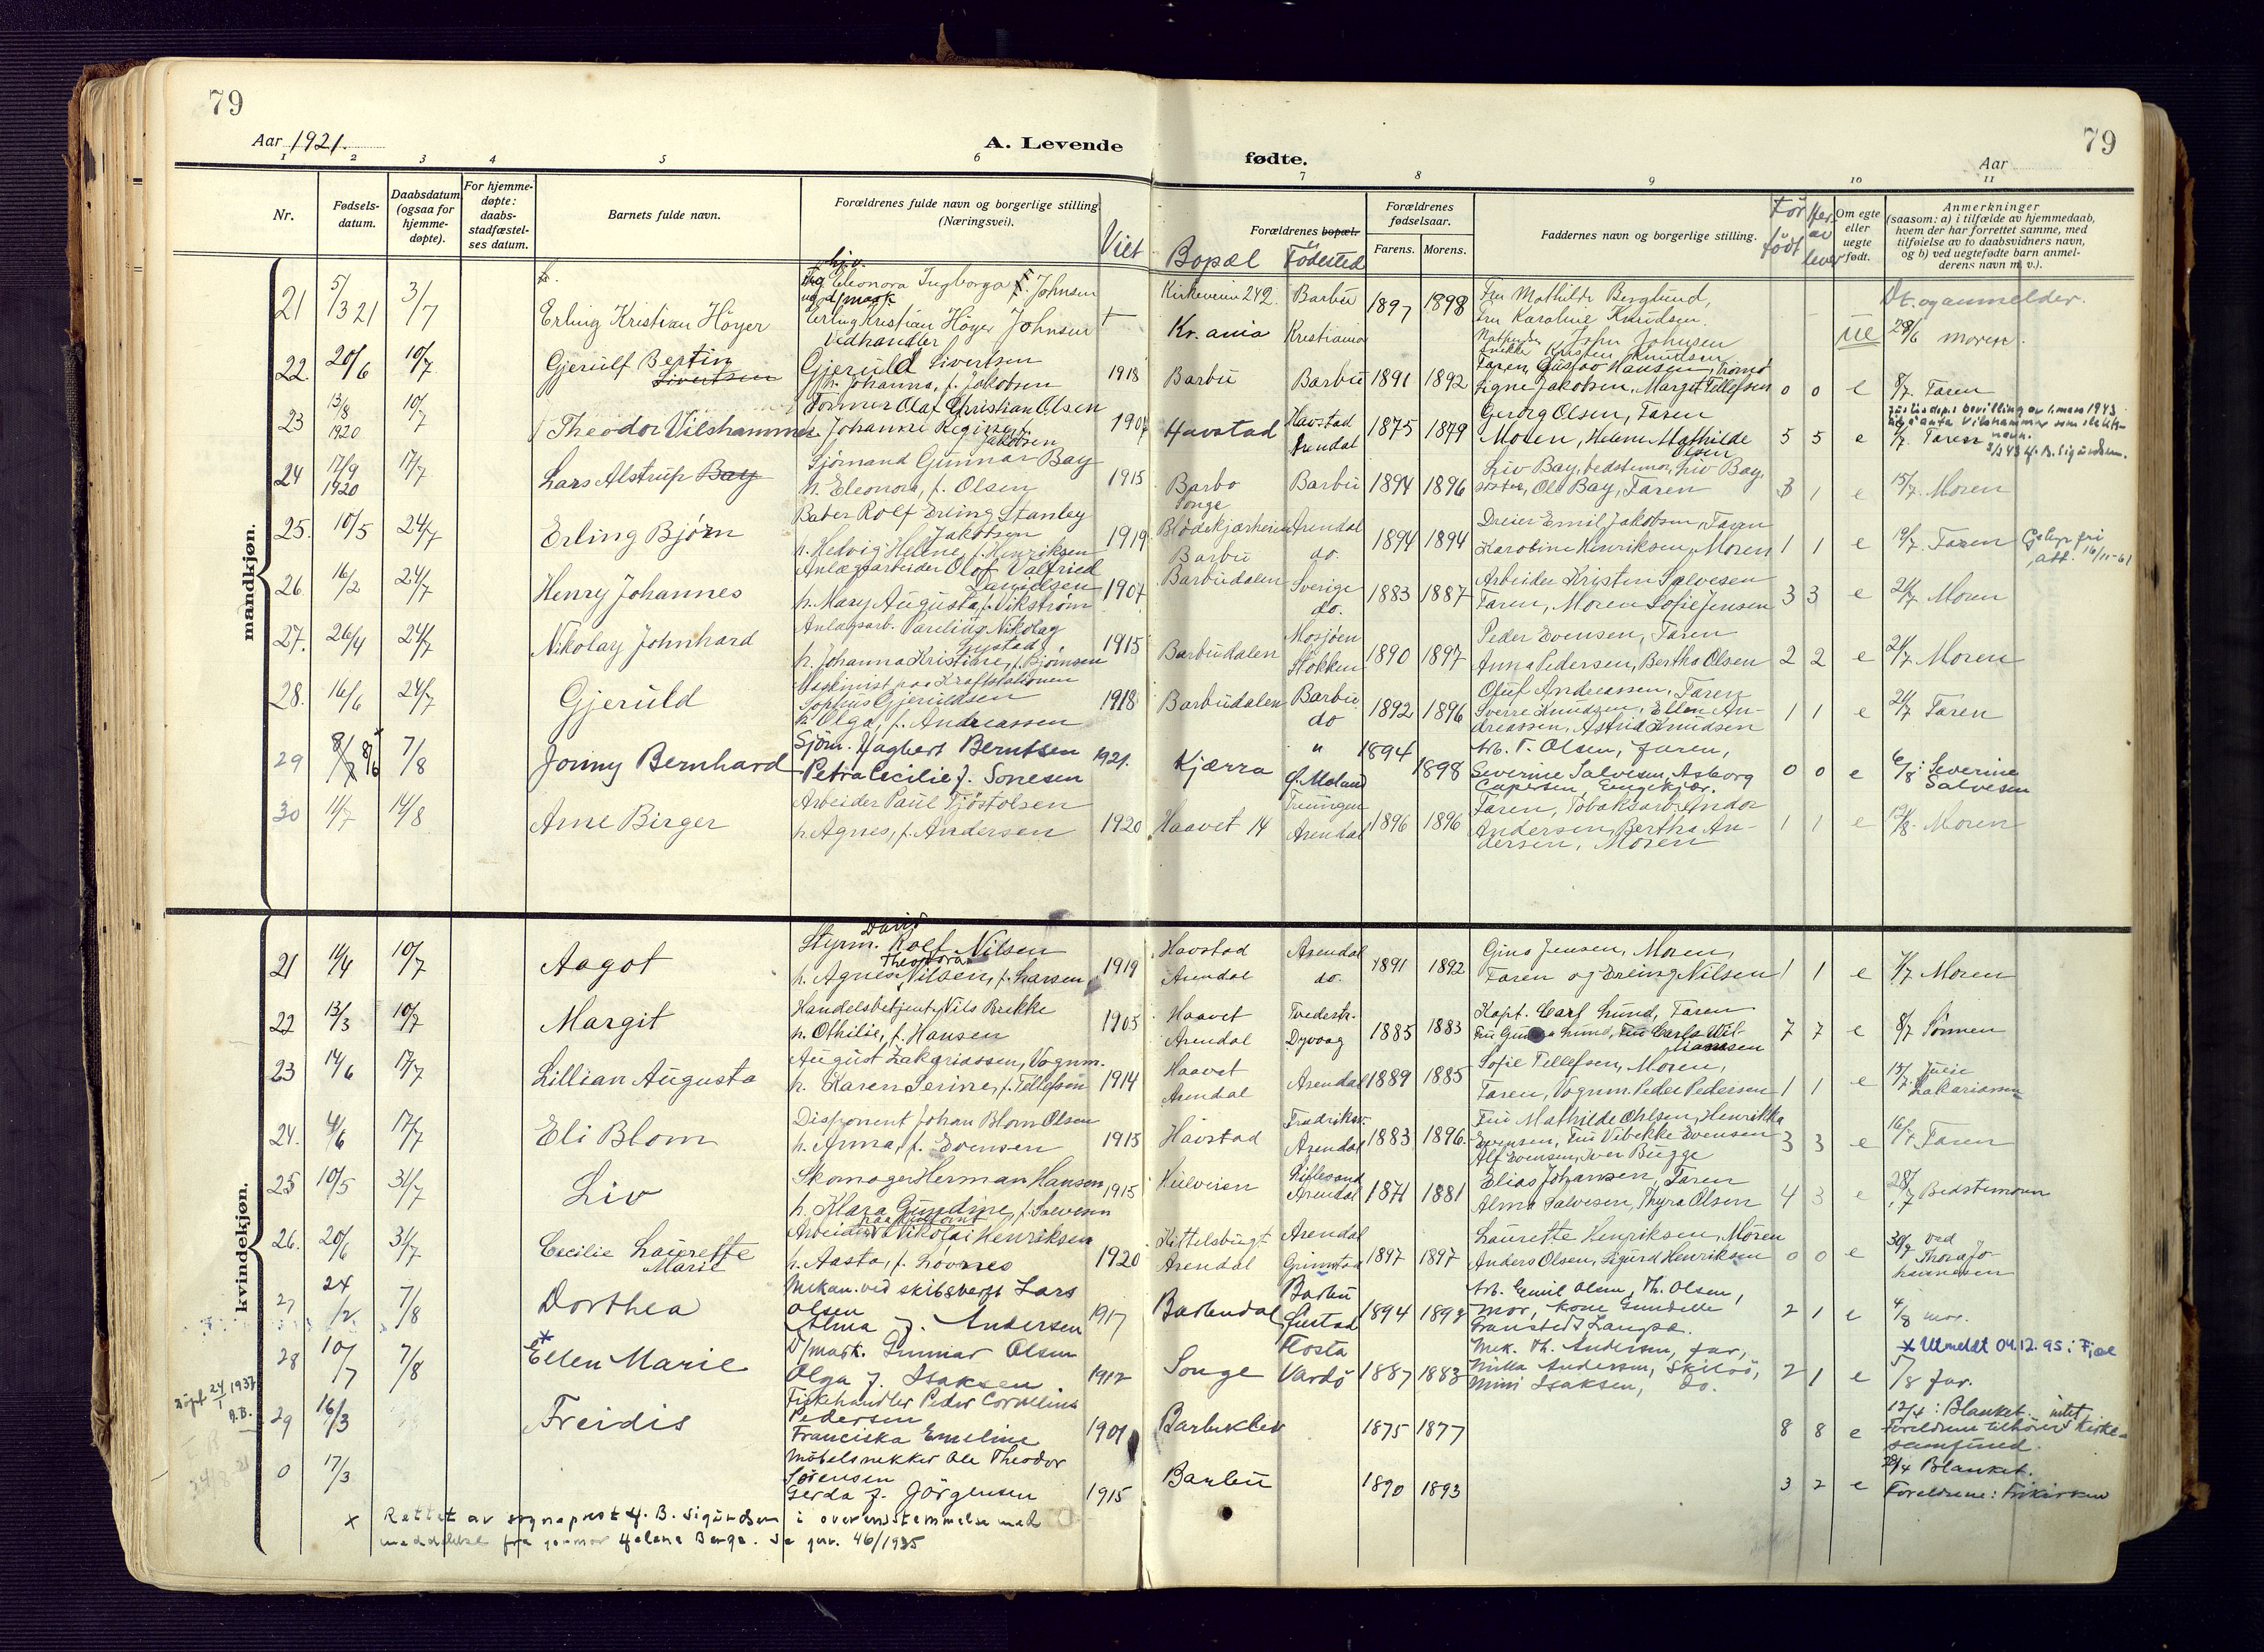 79
79
Aar 1921.
A. Levende
fødte.
Aar
1 2 3 4 5 6 7 8 9 10 11
Nr.
Fødsels-
datum.
Daabsdatum
(ogsaa for
hjemme-
døpte).
For hjemme-
døpte:
daabs-
stadfæstel-
ses datum.
Barnets fulde navn.
Forældrenes fulde navn og borgerlige stilling
(Næringsvei).
Viet
Forældrenes bopæl.
Bopæl Födested
Forældrenes
fødselsaar.
Farens. Morens.
Faddernes navn og borgerlige stilling.
Før
født
Her
av
lever
Om egte
eller
uegte
født.
Anmerkninger
(saasom: a) i tilfælde av hjemmedaab,
hvem der har forrettet samme, med
tilføielse av to daabsvidners navn,
og b) ved uegtefødte barn anmel-
derens navn m. v.).
mandkjøn.
21 5/3 21 3/7 Erling Kristian Höyer
Eleonora Ingborga Johnsen
Erling Kristian Höyer Johnsen
Kirkeveien 242. Barbu
Kr.ania Kristiania
1897 1898
Fru Mathilde Berglund,
Fru Karoline Knudsen.
John Johnsen
Kristen Knudsen
ue
28/6 moren.
22. 20/6 10/7 Gjerulf Bertin
Sivertsen
Vedhandler
Gjeruld Sivertsen
h. Johanna, f. Jakobsen
1918 Barbu Barbu 1891 1892
Faren, Gustav Hansen, Tromö
Signe Jakobsen, Margit Tellefsen
0 0 e 8/7. Faren
23 13/8 1920 10/7 Theodor Vilshammer
Former Olaf Christian Olsen
h. Johanne Regine, f.
Jakobsen
1907 Havstad Havstad
Arendal
1875 1879
Georg Olsen, Faren
Moren, Helene Mathilde
Olsen
5 5 e
Justisdep.s bevilling av 1. mars 1943
Vilshammer som slekts-
navn.
Faren
24 17/9 1920 17/7 Lars Alstrup Bay
Sjömand Gunnar Bay
h. Eleonora, f. Olsen
1915 Barbo
Songe
Barbu 1894 1896
Liv Bay, bedstemor, Liv Bay,
söster, Ole Bay, Faren
3 1 e 15/7. Moren
25. 10/5 24/7 Erling Bjørn
Baker Rolf Erling Stanley
Jakobsen
h. Hedvig Helene, f. Henriksen
1919 Blödekjærheien
Barbu
Arendal
do.
1894 1894
Dreier Emil Jakobsen, Faren
Karoline Henriksen, Moren
1 1 e 19/7. Faren
att. 16/11-61
26. 16/2 24/7 Henry Johannes
Anlægsarbeider Olof Valfried
Danielsen
h. Mary Augusta, f. Vikström
1907 Barbudalen Sverige
do.
1883 1887
Arbeider Kristen Salvesen
Faren, Moren Sofie Jensen
3 3 e 21/7. Moren
27. 26/4 24/7 Nikolay Johnhard
Anlægsarb. Parelius Nikolay
Gustad
h. Johanna Kristiane, f. Bjørnsen
1915 Barbudalen Mosjöen
Stokken
1890 1897
Peder Evensen, Faren
Anna Pedersen, Bertha Olsen
2 2 e 21/7. Moren
28. 16/6 24/7 Gjeruld
Maskinist paa Kraftstationen
Sophus Gjeruldsen
h Olga, f. Andreassen
1918 Barbudalen Barbu
do
1892 1896
Oluf Andreassen, Faren
Sverre Knudsen, Ellen An-
dreassen, Astrid Knudsen
1 1 e 21/7 Faren
29 7/8 Jonny Bernhard
Sjöm. Hagbert Berntsen
Petra Cecilie f. Sörresen
1921. Kjærra "
Ö. Moland
1894 1898
Arb. T. Olsen, faren,
Severine Salvesen, Asborg
Caspersen, Engekjær.
0 0 e 6/8: Severine
Salvesen
30 11/7 14/8 Arne Birger
Arbeider Paul Tjöstolsen
h. Agnes, f. Andersen
1920 Haavet 14 Treungen
Arendal
1896 1896
Faren, Tobaksarb. Andor
Andersen, Bertha An-
dersen, Moren
1 1 e 12/8. Moren
kvindekjøn.
21 11/4 10/7 Aagot
David
Styrm. Rolf Nilsen
Theodora
h. Agnes Nilsen, f. Larsen
1919 Havstad
Arendal
Arendal
do.
1891 1892
Gina Jensen, Moren,
Faren og Erling Nilsen
1 1 e Moren
22 13/3 10/7 Margit
Handelsbetjent Nils Brekke
h. Othilie, f. Hansen
1905 Haavet
Arendal
Tvedestr.
Dyvaag
1885 1883
Kapt. Carl Lund, Faren
Lund, Fru Carla Wil-
liamsen
7 7 e 8/7 Sönnen
23 14/6 17/7 Lillian Augusta
August Zakariassen, Vognm.
h. Karen Serine, f. Tellefsen
1914 Haavet
Arendal
Arendal 1889 1885
Sofie Tellefsen, Moren,
Faren, Vognm. Peder Pedersen
1 1 e 15/7. Julie
Zakariassen
24. 4/6 17/7 Eli Blom
Disponent Johan Blom Olsen
h. Anna, f. Evensen
1915 Havstad Fredriksv.
Arendal
1883 1896.
Fru Mathilde Ohlsen, Henrikka
Evensen, Fru Vibekke Evensen
Alf Evensen, Iver Bugge
3 3 e 16/7 Faren
25 10/5 31/7 Liv
Skomager Herman Hansen
h. Klara Gundine, f. Salvesen
1915 Kulveien Lillesand
Arendal
1871 1881
Elias Johansen, Faren
Alma Salvesen, Thyra Olsen
4 3 e 28/7 Bedstemoren
26. 20/6 31/7 Cecilie Laurette
Marie
Arbeider Nikolai Henriksen
h. Aasta, f. Lövnes
1920 Kittelsbugt
Arendal
Arendal
Grimstad
1897 1897
Laurette Henriksen, Moren
Anders Olsen, Sigurd Henriksen
0 0 e 30/7 ved
Thora Jo-
hannesen
27 24/2 7/8 Dorthea
Mekan. ved skibsverft Lars
Olsen
Alma f. Andersen
1917 Barbudal Barbu
1894 1893
Arb. Emil Olsen, Th. Olsen,
mor, kone Gundelle
2 1 e 4/8 mor.
28 10/7 7/8 Ellen Marie
D/mask. Gunnar Olsen
Olga f. Isaksen
1912 Songe Flosta
Vardö
1887 1883
Mek. Th. Andersen, far,
Milla Andersen, Skilsö,
Mimi Isaksen, do.
2 1 e
* Utmeldt 04.12.95
5/8 far.
Döpt 24/1 1937
29 16/3 Freidis
Fiskehandler Peder Cornelius
Pedersen
Franciska Emeline
1901 Barbuklev 1875 1877
8 8 e 12/4: Blanket.
Foreldrene tilhører intet kirke-
samfund.
0 17/3
Möbelsnekker Ole Theodor
Sörensen
Gerda f. Jörgensen
1915 Barbu 1890 1893
3 2 e Blanket.
Foreldrene: Frikirken
x Rettet av sogneprest H. B. Sigurdsen i overensstemmelse med
meddelelse fra Helene Berge. Se jnr. 46/1935